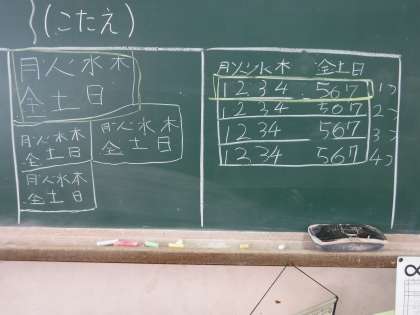 (こたえ)
月火水木
金土日
月火水木
金土日
月火水木
金土日
月火水木
金土日
月火水木 金土日
1234 567 1つ
1234 567 2つ
1234 567 3つ
1234 567 4つ